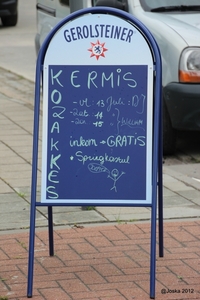 GEROLSTEINER
KOZAKKES
KERMIS
-vr. 13 Juli :D
-zat 14
-zon 15
inkom → GRATiS
• Springkasteel
@Joska 2012